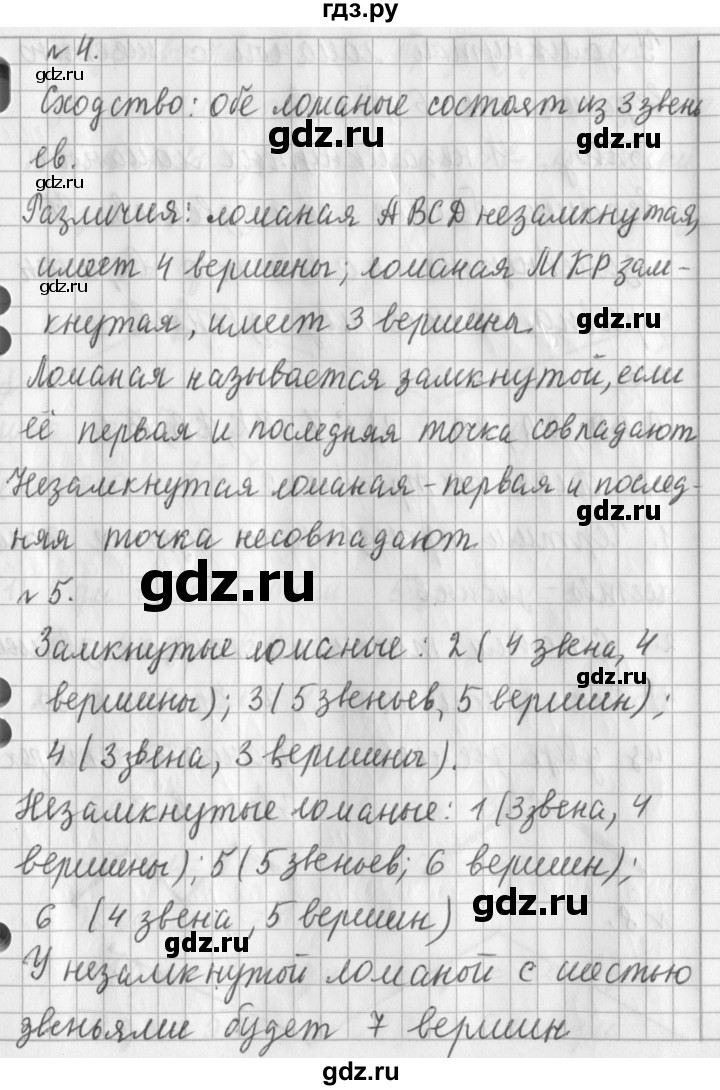 гдз.ру
№ 4.
gdz.ru
Сходство: обе ломаные состоят из 3 звень
gdz.ru
gdz.ru
ев.
gdz.ru
Различия: ломаная ABCD незамкнутая,
имеет 4 вершины; ломаная МКР зам-
gdz.ru
gdz.ru
кнутая, имеет 3 вершины.
Ломаная называется замкнутой, если
её первая и последняя точка совпадают
Незамкнутая ломаная - первая и послед-
gdz.ru
няя точка несовпадают.
gdz.ru
№ 5.
Замкнутые ломаные: 2 ( 4 звена, 4
gdz.ru
вершины); 3 (5 звеньев, 5 вершин);
4 (3 звена, 3 вершины).
Незамкнутые ломаные: 1 (3 звена, 4
вершины); 5 (5 звеньев; 6 вершин);
gdz.ru
6 (4 звена, 5 вершин)
gdz.ru
У незамкнутой ломаной с шестью
звеньями будет 7 вершин
gdz.ru
gdz.ru